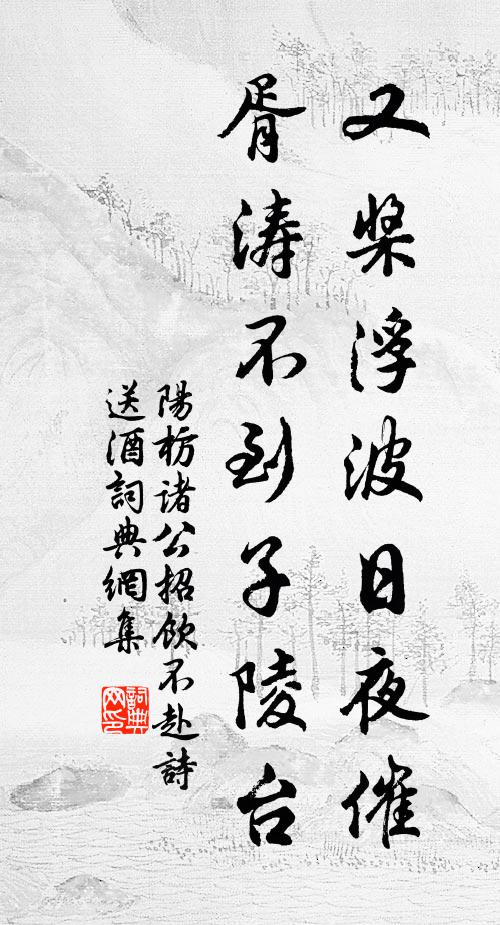 又槳浮波日夜催
胥濤不到子陵台
陽枥諸公招飲不赴詩
送酒詞典網集
詞典
网印